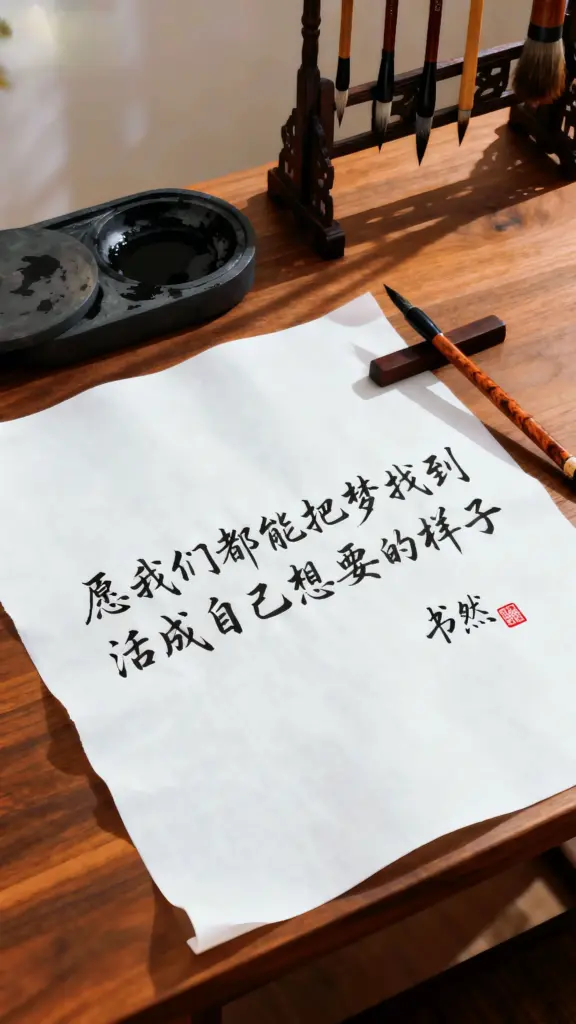 愿我们都能把梦找到
活成自己想要的样子
书然